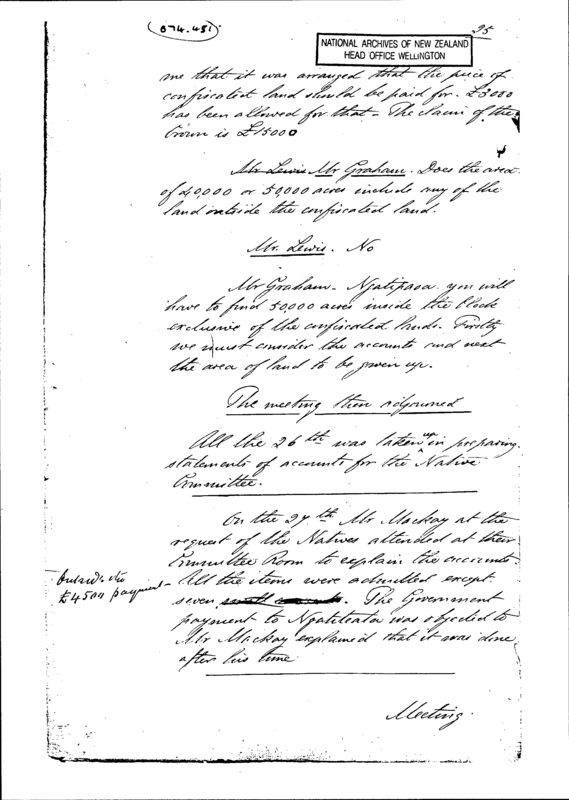 074.451
95
NATIONAL ARCHIVES OF NEW ZEALAND
HEAD OFFICE WELLINGTON
me that it was arranged that the piece of
confiscated land should be paid for. £3000
has been allowed for that - The claim of the
Crown is £15000
Mr Lewis Mr Graham. Does the area
of 40,000 or 50,000 acres include any of the
land outside the confiscated land.
Mr. Lewis. No
Mr Graham - Ngatipaoa you will
have to find 50,000 acres inside the block
exclusive of the confiscated lands. Firstly
we must consider the accounts and next
the area of land to be given up.
The meeting then adjourned
All the 26th was taken up in preparing
statements of accounts for the Native
Committee.
On the 27th Mr Mackay at the
request of the Natives attended at their
Committee Room to explain the accounts.
All the items were admitted except
£4500 payment -
seven. The Government
payment to was objected to
Mr Mackay explained that it was done
after his time
Meeting